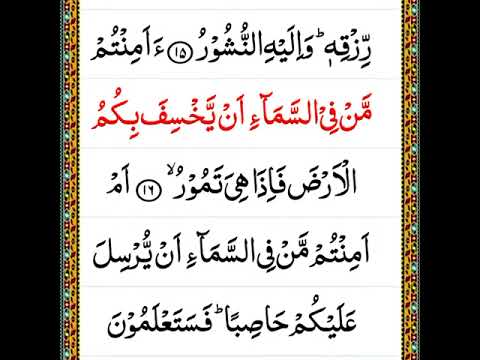 رِّزۡقِهٖ ؕ وَاِلَيۡهِ النُّشُوۡرُ ﴿۱۵﴾ ءَاَمِنۡتُمۡ
مَّنۡ فِى السَّمَآءِ اَنۡ يَّخۡسِفَ بِكُمُ
الۡاَرۡضَ فَاِذَا هِىَ تَمُوۡرُ ۙ ﴿۱۶﴾ اَمۡ
اَمِنۡتُمۡ مَّنۡ فِى السَّمَآءِ اَنۡ يُّرۡسِلَ
عَلَيۡكُمۡ حَاصِبًا ؕ فَسَتَعۡلَمُوۡنَ